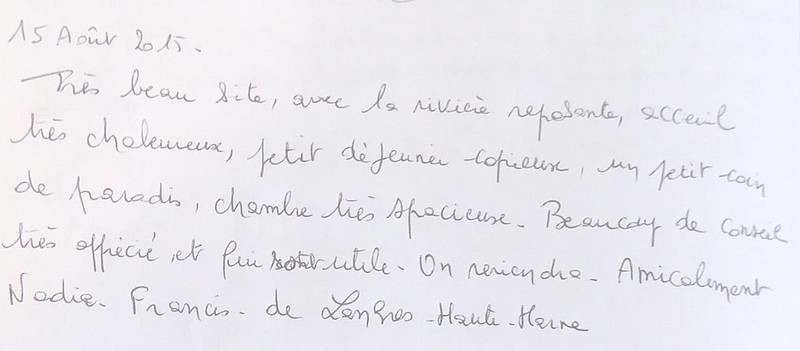 15 Août 2015.
Très beau site, avec la rivière reposante, acceuil
très chaleureux, petit déjeuner copieux, un petit coin
de paradis, chambre très spacieuse. Beaucoup de conseil
très apprécié, et fui utile. On reviendra. Amicalement
Nadia. Francis. de Langres - Haute - Marne